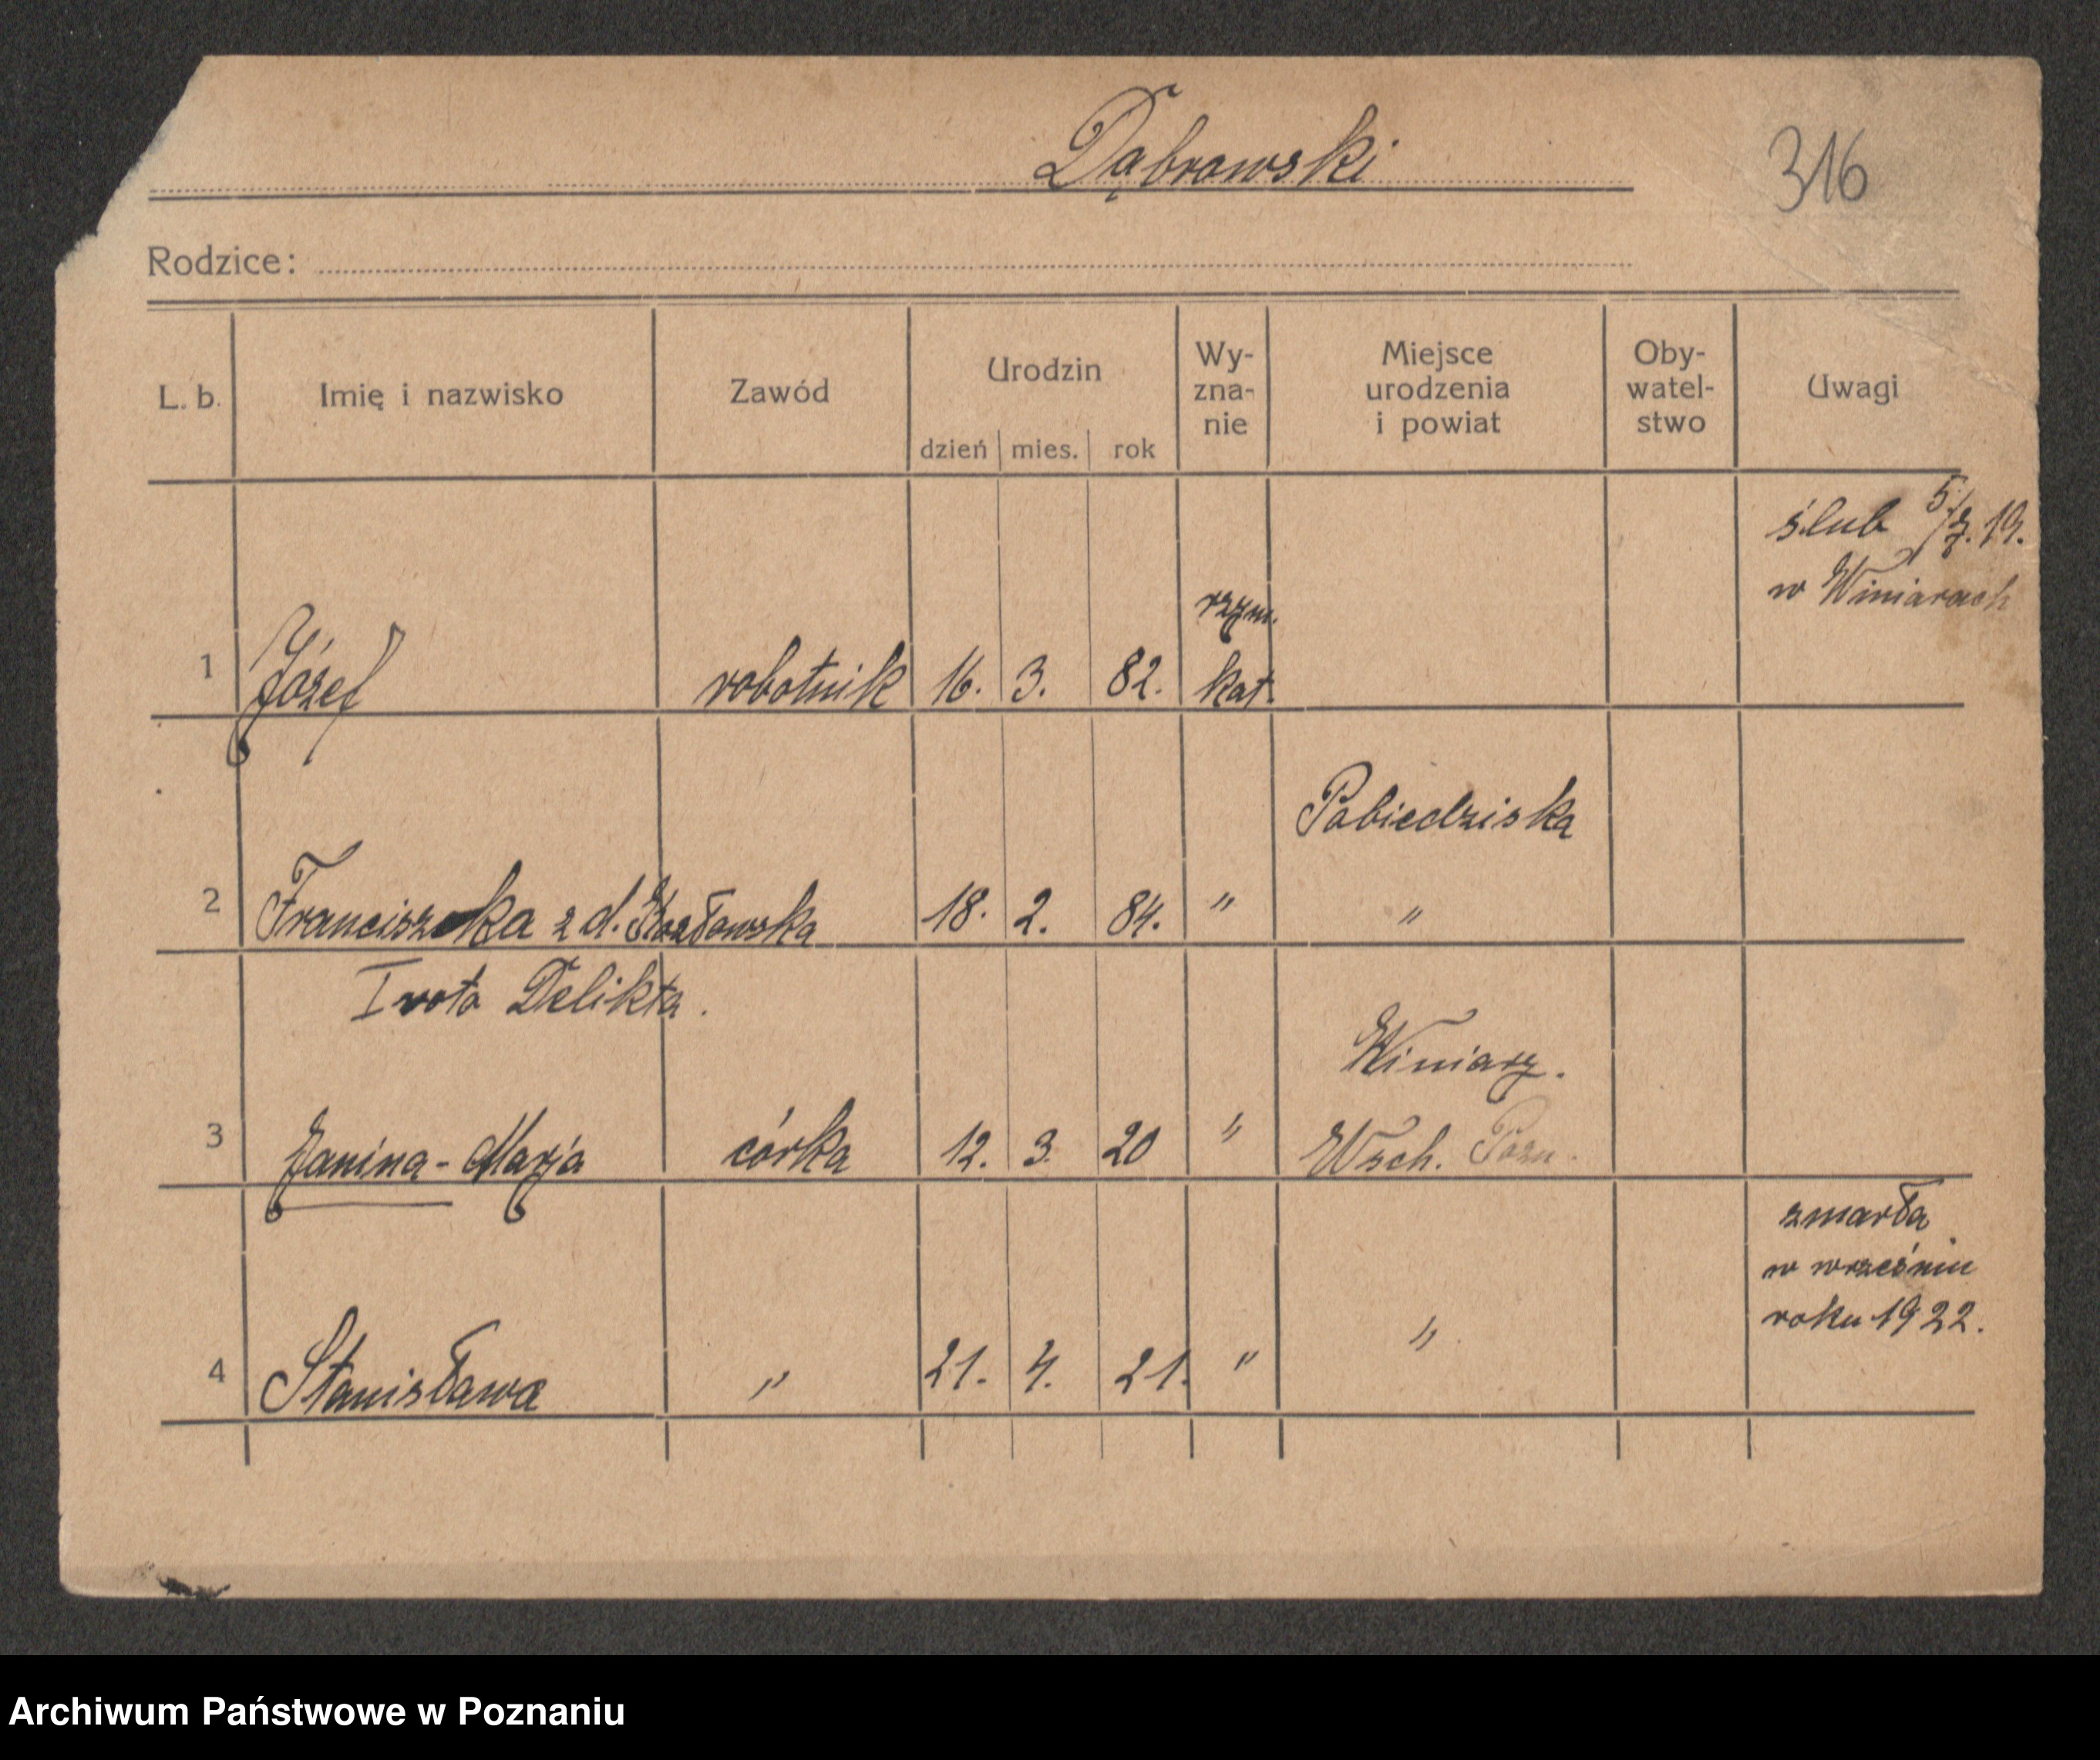 Dąbrowski
316
Rodzice:
L. b. Imię i nazwisko Zawód Urodzin dzień mies. rok Wy-zna-nie Miejsce urodzenia i powiat Oby-watel-stwo Uwagi
ślub 5/7. 19.
w Winiarach
1 Józef robotnik 16. 3. 82. rzym. kat.
Pobiedziska
2 Franciszka z d. 18. 2. 84. " "
I voto Delikta.
Winiary.
3 Janina - Marja córka 12. 3. 20 " Wsch. Pozn.
zmarła
w wrześniu
roku 1922.
4 Stanisława " 21. 4. 21. " "
Archiwum Państwowe w Poznaniu